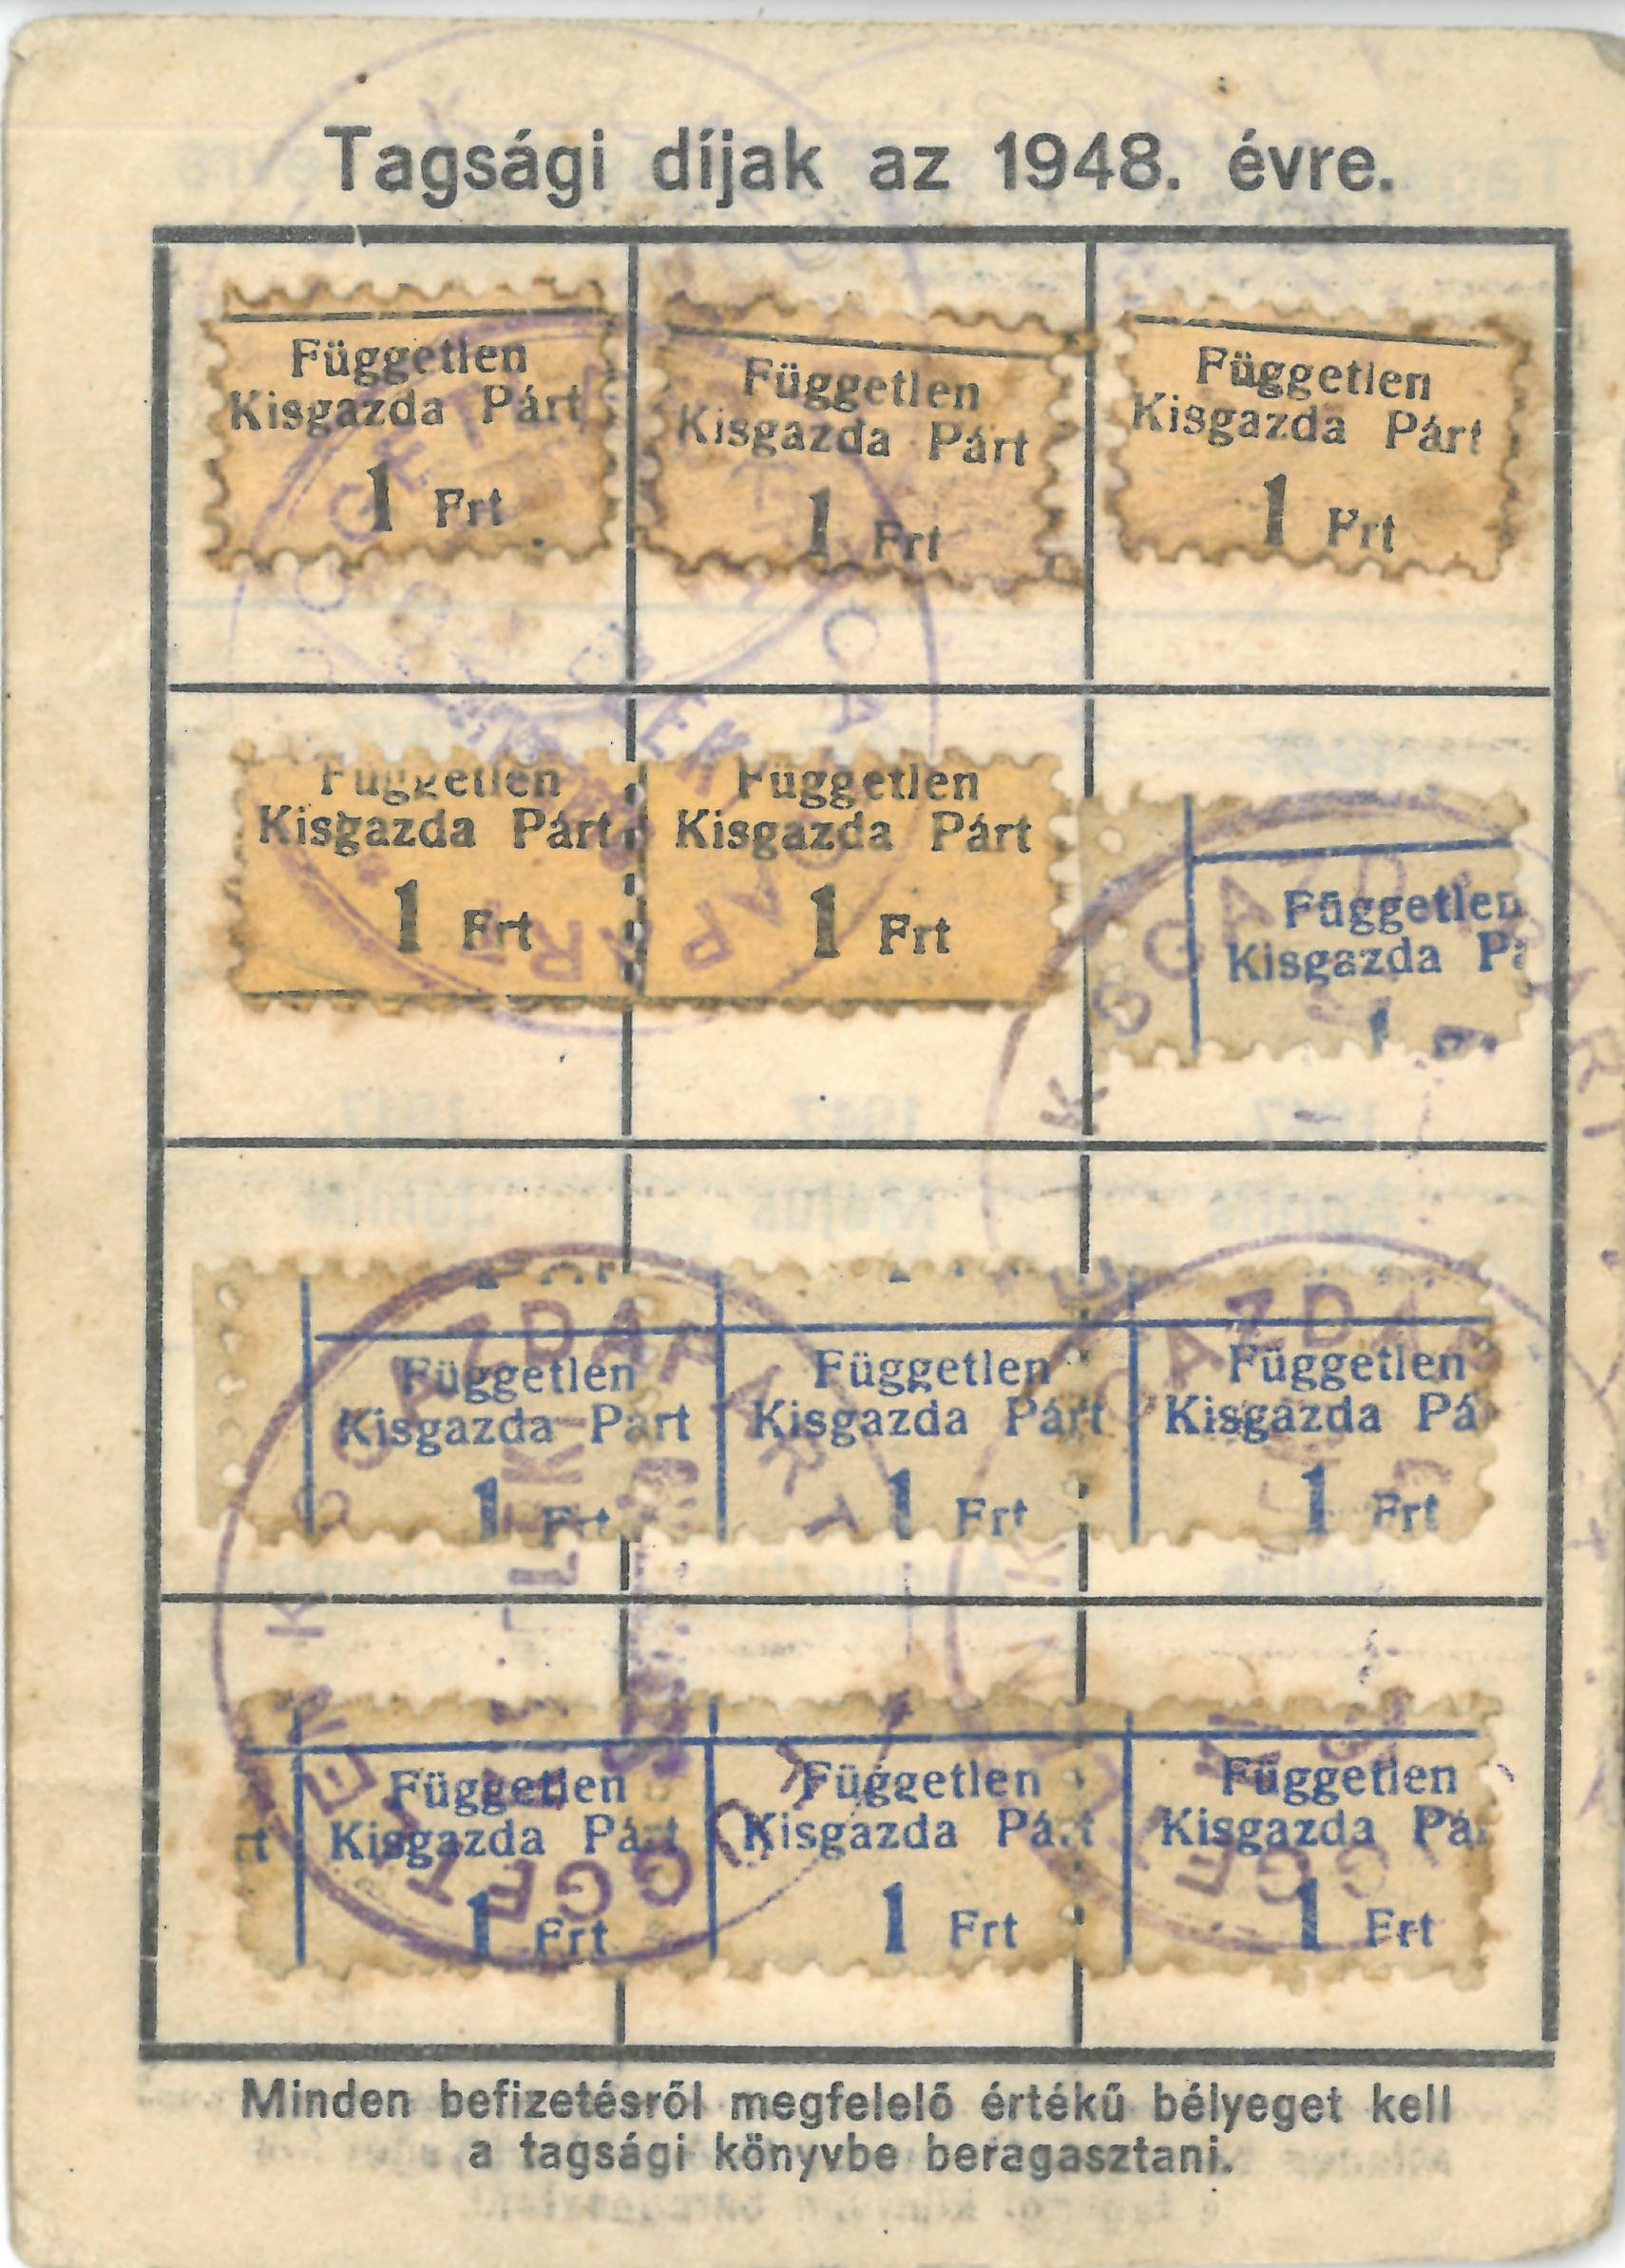 Tagsági díjak az 1948. évre.
Független
Kisgazda Párt
1 Frt
Független
Kisgazda Párt
1 Frt
Független
Kisgazda Párt
1 Frt
Független
Kisgazda Párt
1 Frt
Független
Kisgazda Párt
1 Frt
Független
Kisgazda Pá
1
Független
Kisgazda Párt
1 Frt
Független
Kisgazda Párt
1 Frt
Független
Kisgazda Pá
1 Frt
rt
Független
Kisgazda Párt
1 Frt
Független
Kisgazda Párt
1 Frt
Független
Kisgazda Pár
1 Frt
Minden befizetésről megfelelő értékű bélyeget kell
a tagsági könyvbe beragasztani.